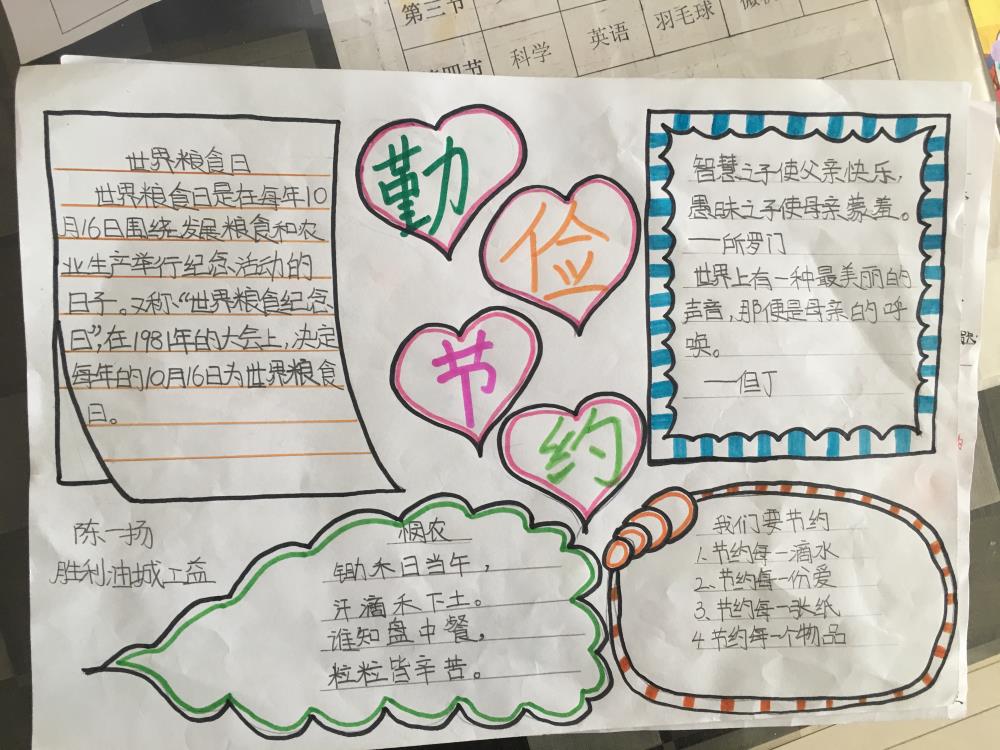 第三节
科学
英语
羽毛球
第四节
世界粮食日
世界粮食日是在每年10
月16日围绕发展粮食和农
业生产举行纪念活动的
日子。又称“世界粮食纪念
日”,在1981年的大会上,决定
每年的10月16日为世界粮食
日。
勤
俭
节
约
智慧之子使父亲快乐,
愚昧之子使母亲蒙羞。
——所罗门
世界上有一种最美丽的
声音,那便是母亲的呼
唤。
——但丁
陈一扬
胜利油城工益
悯农
锄禾日当午,
汗滴禾下土。
谁知盘中餐,
粒粒皆辛苦。
我们要节约
1.节约每一滴水
2.节约每一份爱
3.节约每一张纸
4.节约每一个物品